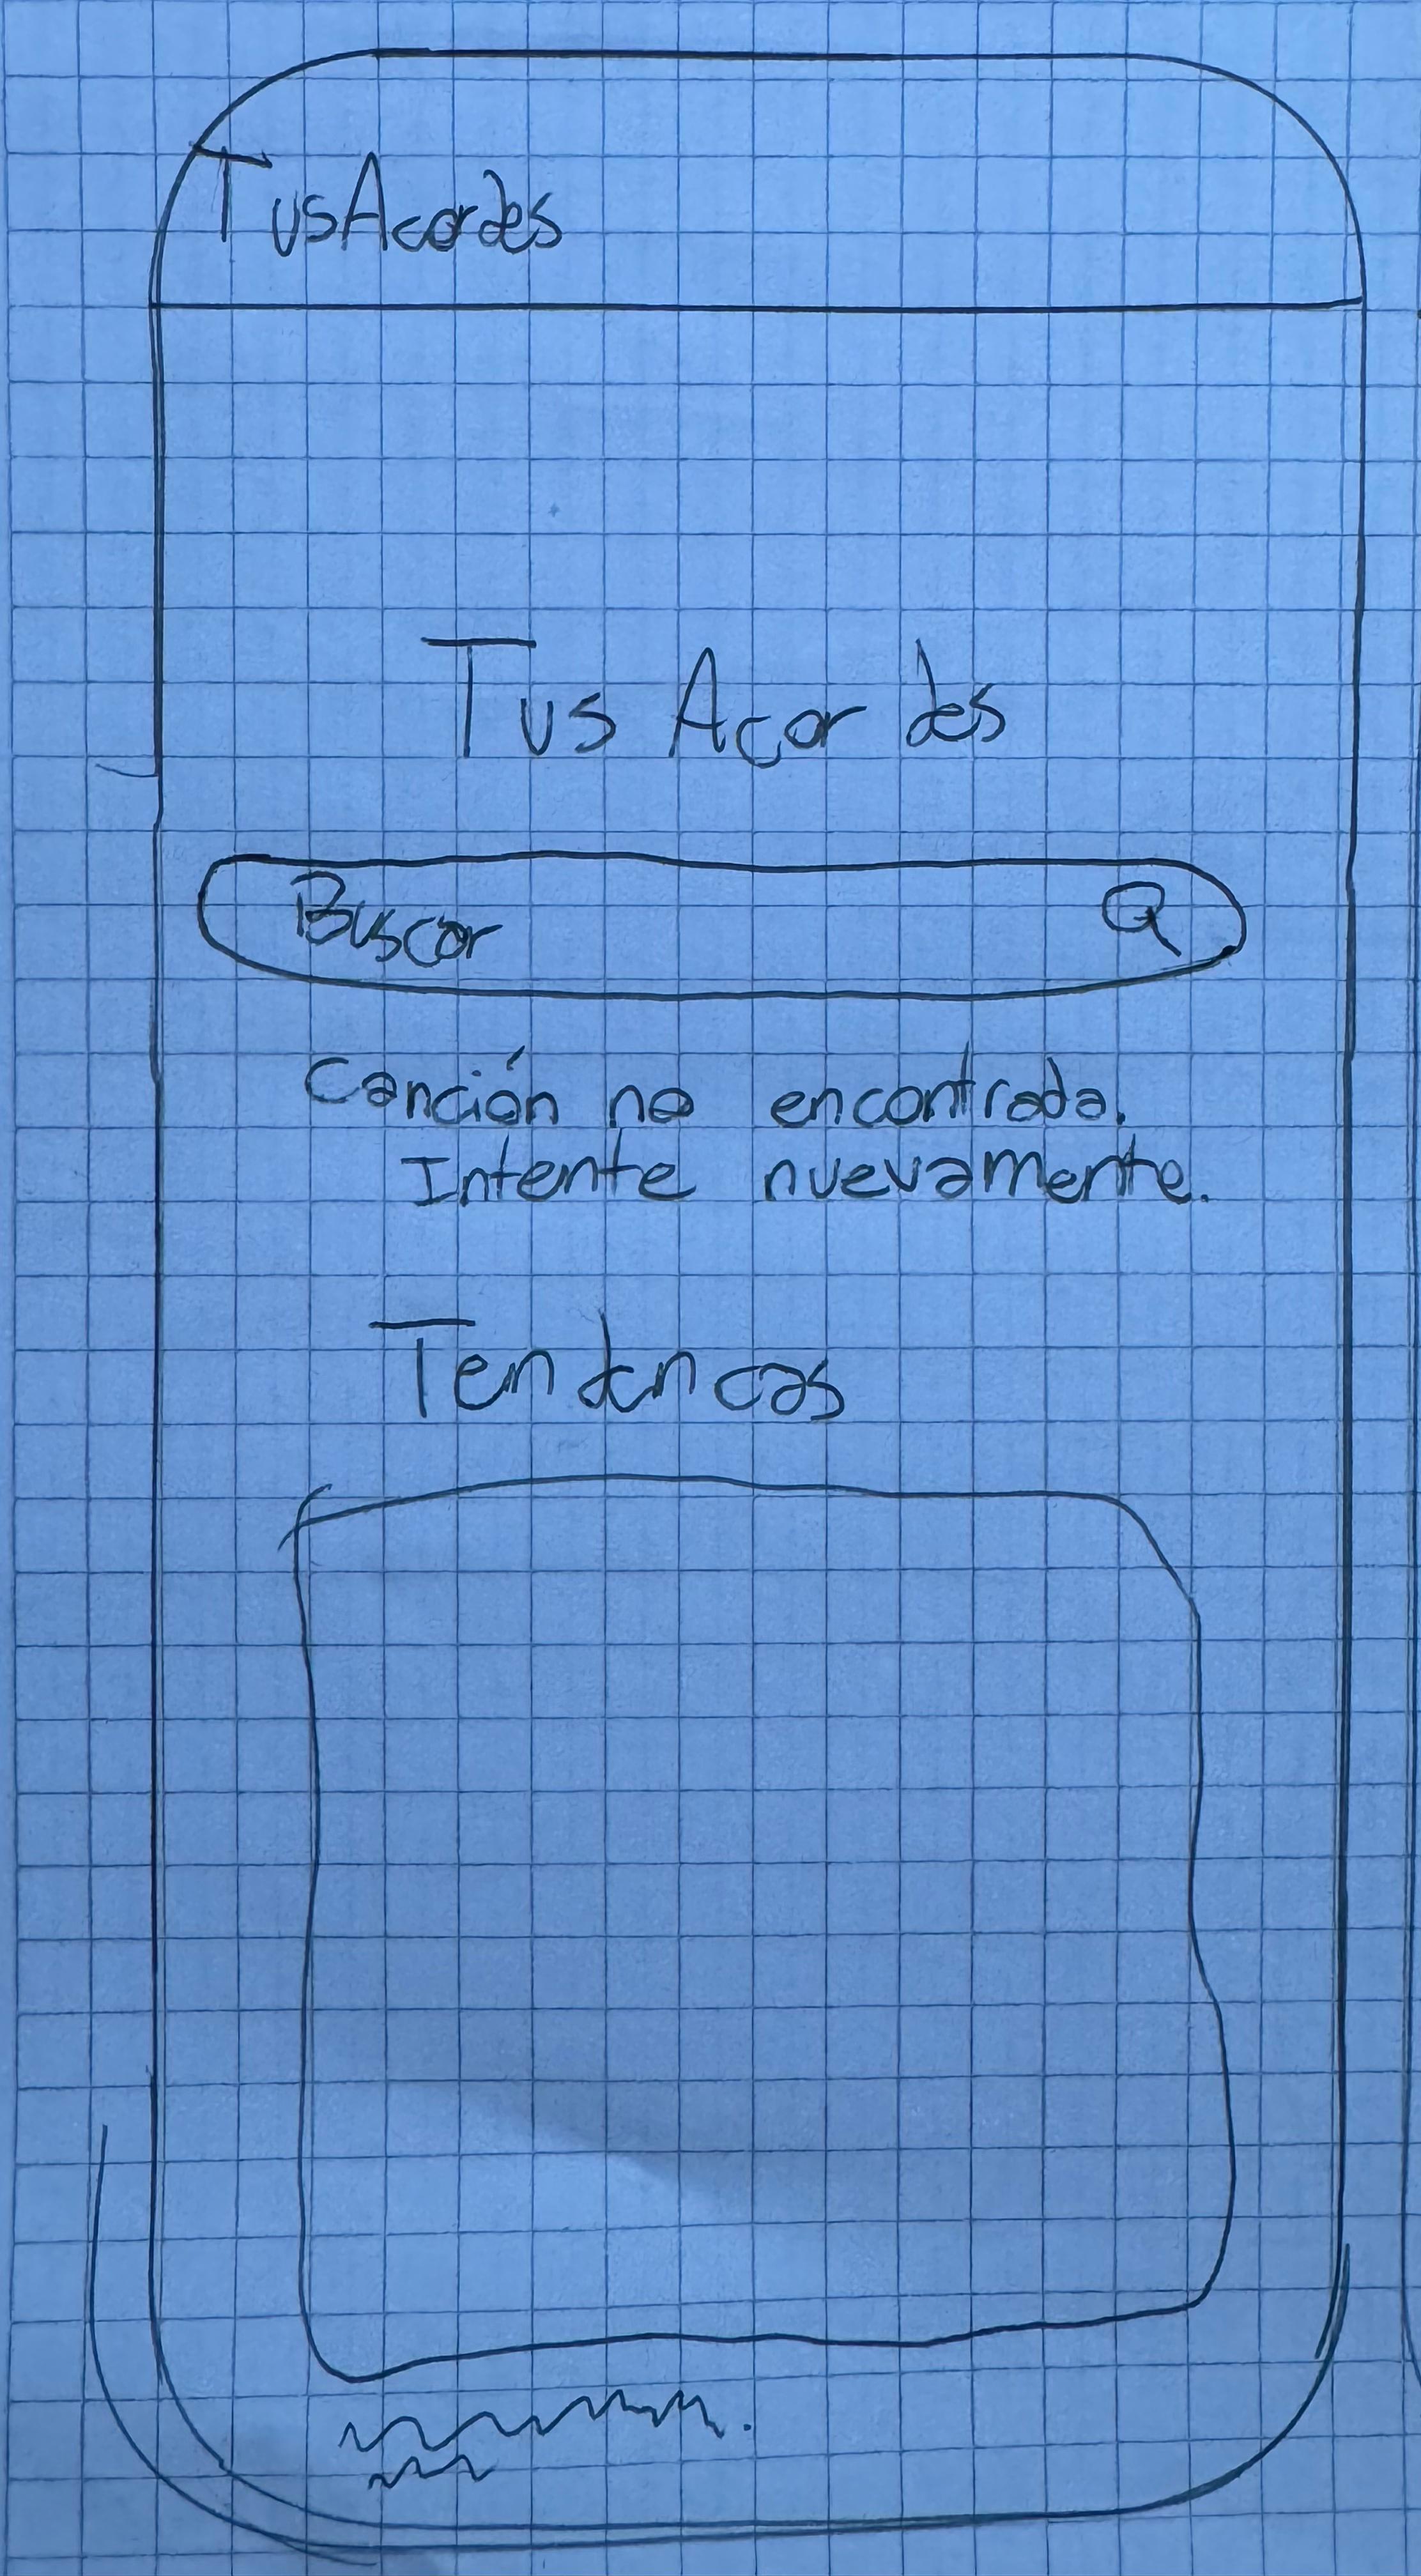 TusAcordes
Tus Acordes
Buscar
Canción no encontrada.
Intente nuevamente.
Tendencas